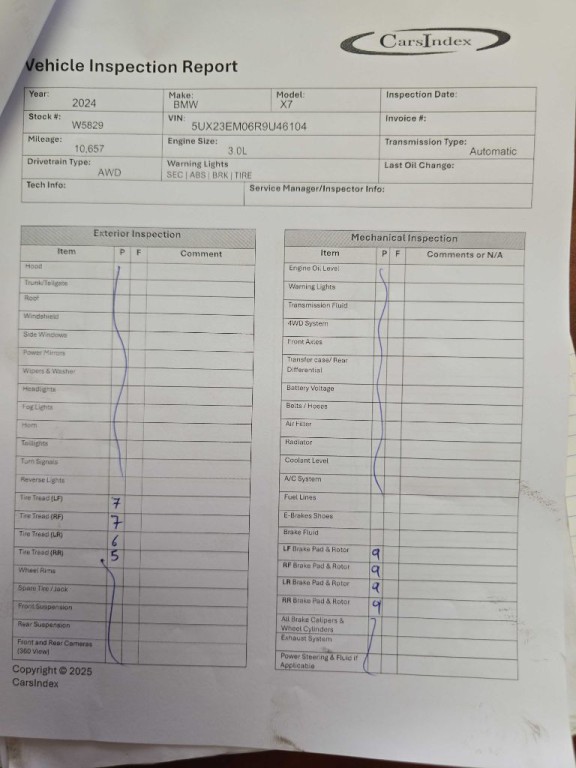 CarsIndex
Vehicle Inspection Report
Year: 2024 Make: BMW Model: X7 Inspection Date:
Stock #: W5829 VIN: 5UX23EM06R9U46104 Invoice #:
Mileage: 10,657 Engine Size: 3.0L Transmission Type: Automatic
Drivetrain Type: AWD Warning Lights SEC | ABS | BRK | TIRE Last Oil Change:
Tech Info: Service Manager/Inspector Info:
Exterior Inspection
Item P F Comment
Hood
Trunk/Tailgate
Roof
Windshield
Side Windows
Power Mirrors
Wipers & Washer
Headlights
Fog Lights
Horn
Taillights
Turn Signals
Reverse Lights
Tire Tread (LF) 7
Tire Tread (RF) 7
Tire Tread (LR) 6
Tire Tread (RR) 5
Wheel Rims
Spare Tire / Jack
Front Suspension
Rear Suspension
Front and Rear Cameras
(360 View)
Mechanical Inspection
Item P F Comments or N/A
Engine Oil Level
Warning Lights
Transmission Fluid
4WD System
Front Axles
Transfer case/ Rear
Differential
Battery Voltage
Belts / Hoses
Air Filter
Radiator
Coolant Level
A/C System
Fuel Lines
E-Brakes Shoes
Brake Fluid
LF Brake Pad & Rotor 9
RF Brake Pad & Rotor 9
LR Brake Pad & Rotor 9
RR Brake Pad & Rotor 9
All Brake Calipers &
Wheel Cylinders
Exhaust System
Power Steering & Fluid if
Applicable
Copyright © 2025
CarsIndex